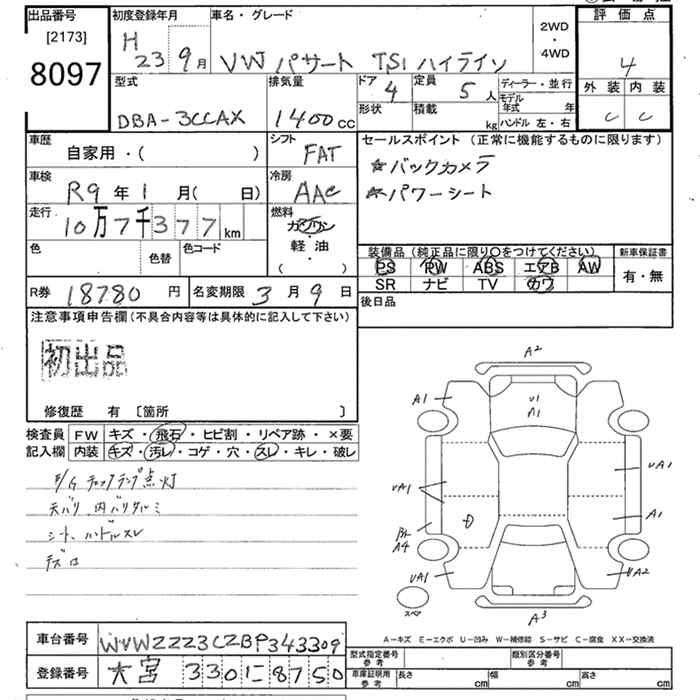 出品番号 [2173] 8097
初度登録年月 H 23 9月
車名・グレード VW パサート TSI ハイライン
2WD ・ 4WD
評価点 4
外装 内装 C C
型式 DBA-3CCAX
排気量 1400cc
ドア 4 定員 5人
形状 積載 kg
ディーラー・並行
モデル年式 年
ハンドル 左・右
車歴 自家用・( )
シフト FAT
車検 R9年1月( 日)
冷房 AAC
走行 10万7千377km
燃料 ガソリン 軽油・( )
色 色替 色コード
セールスポイント (正常に機能するものに限ります)
☆バックカメラ
☆パワーシート
装備品(純正品に限り○をつけてください) 新車保証書
PS PW ABS エアB AW 有・無
SR ナビ TV カワ
後日品
R券 18780円 名変期限 3月9日
注意事項申告欄(不具合内容等は具体的に記入して下さい)
初出品
修復歴 有 〔箇所 〕
検査員 FW キズ・飛石・ヒビ割・リペア跡・×要
記入欄 内装 キズ・汚レ・コゲ・穴・スレ・キレ・破レ
F/G チェックランプ点灯
天バリ、内バリダルミ
シート、ハンドルスレ
A2
A1 U1 A1
UA1 UA1
A1
A4
UA1 UA2
スペア A3
A-キズ E-エクボ U-凹み W-補修跡 S-サビ C-腐食 XX-交換済
車台番号 WVWZZZ3CZBP343309
登録番号 大宮 330 に 8750
型式指定番号 参考 類別区分番号 参考
車庫証明用 参考 長さ cm 幅 cm 高さ cm